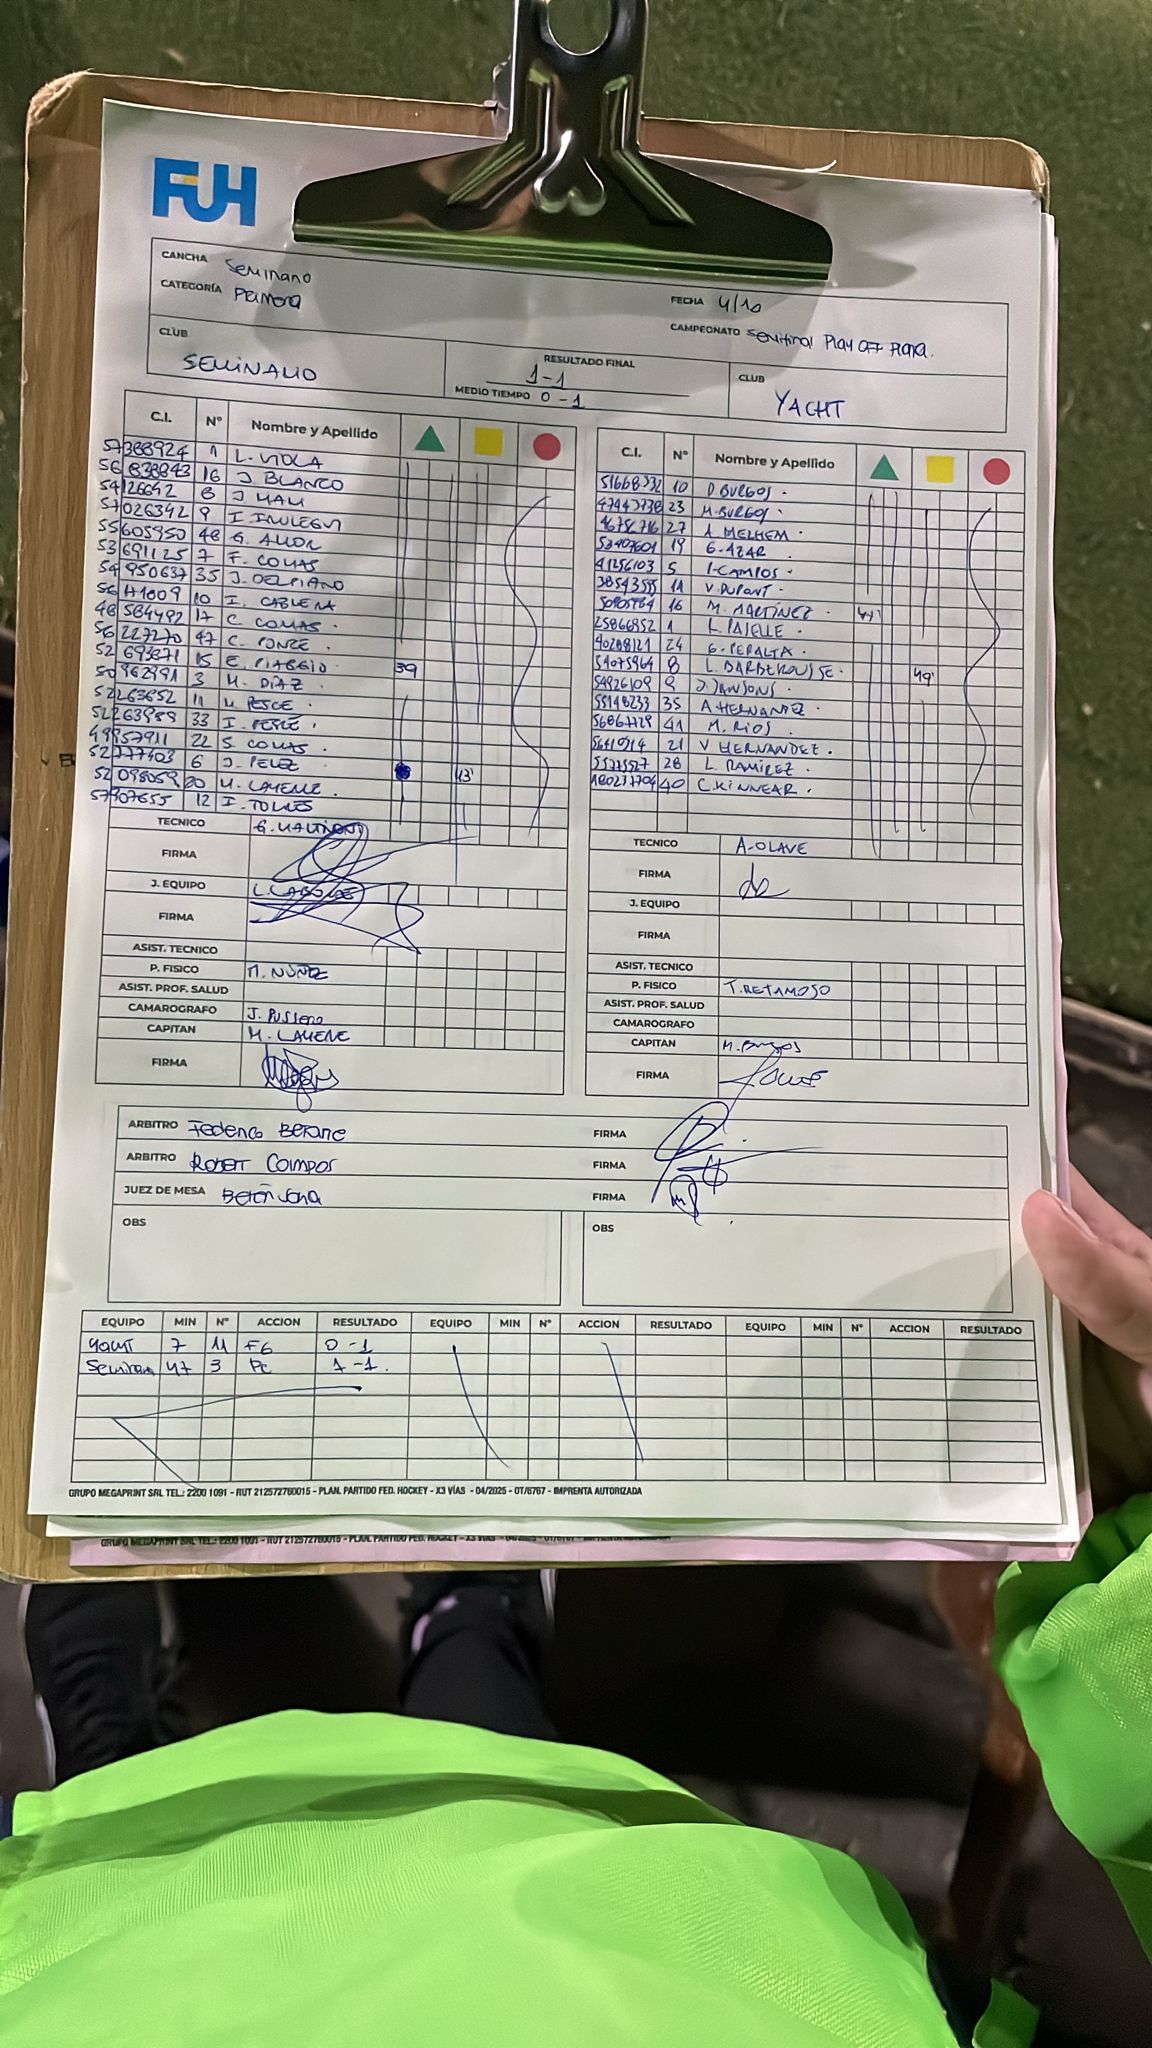 FUH
CANCHA Seminario
CATEGORÍA Primera
FECHA 4/10
CAMPEONATO Semifinal Play OFF Plata.
CLUB SEMINARIO
RESULTADO FINAL 1-1
MEDIO TIEMPO 0-1
CLUB YACHT
C.I. N° Nombre y Apellido
57388924 1 L. VIOLA
56838843 16 J. BLANCO
54126642 8 J. MAU
57026342 9 I.
55605950 48 G. AMOR
53691125 7 F. COMAS
54950637 35 J. DELPIANO
10 I. CABRERA
48584492 17 C. COMAS.
56227270 47 C. PONZE.
52693871 15 E. PIAGGIO. 39
50962991 3 M. DIAZ.
52263652 11 M. PESCE.
52263989 33 I. PESCE.
49957911 22 S. COMAS.
52777403 6 J. PEREZ. 43'
52098059 20 M. LAMENE.
57907655 12 I. TORRES
TECNICO
FIRMA
J. EQUIPO
FIRMA
ASIST. TECNICO
P. FISICO M. NUÑEZ
ASIST. PROF. SALUD
CAMAROGRAFO J. Russero
CAPITAN M. LAMENE
FIRMA
C.I. N° Nombre y Apellido
51668332 10 D. BURGOS.
47447738 23 M. BURGOS.
46752716 27 A. MELHEM.
52407601 19 G. AZAR.
41256103 5 I. CAMPOS.
38543585 11 V. DUPONT.
50905984 16 M. MARTÍNEZ. 47'
25866952 1 L. PAIELLE.
40288121 24 G. PERALTA.
54075964 8 L. BARBEROUSSE. 49'
54926109 9 J. JANSONS.
55148233 35 A. HERNANDEZ.
56867728 41 M. RIOS.
56410914 21 V HERNANDEZ.
28 L. RAMIREZ.
40 C. KINNEAR.
TECNICO A. OLAVE
FIRMA
J. EQUIPO
FIRMA
ASIST. TECNICO
P. FISICO T. RETAMOSO
ASIST. PROF. SALUD
CAMAROGRAFO
CAPITAN M. Burgos
FIRMA
ARBITRO Federico FIRMA
ARBITRO Robert Campos FIRMA
JUEZ DE MESA FIRMA
OBS
OBS
EQUIPO MIN N° ACCION RESULTADO EQUIPO MIN N° ACCION RESULTADO EQUIPO MIN N° ACCION RESULTADO
Yacht 7 11 FG 0-1
47 3 PC 1-1.
GRUPO MEGAPRINT SRL TEL.: 2200 1091 - RUT 212572760015 - PLAN. PARTIDO FED. HOCKEY - X3 VÍAS - 04/2025 - OT/6767 - IMPRENTA AUTORIZADA